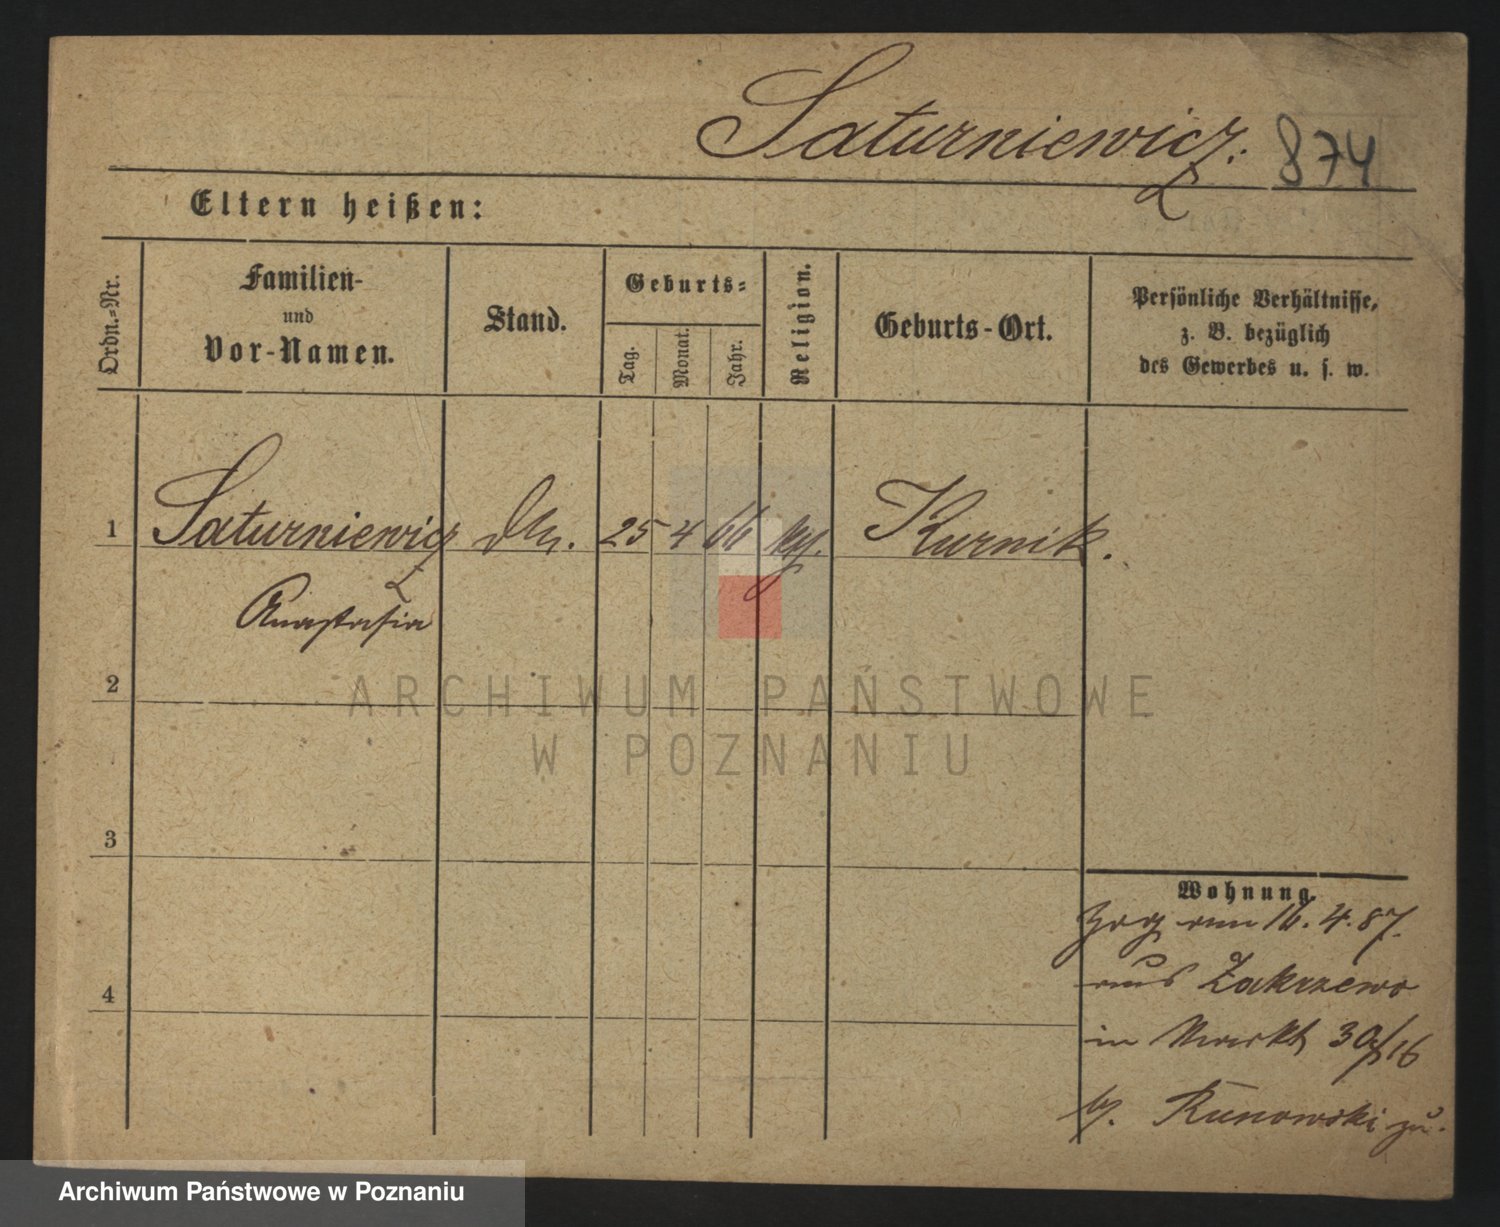 Saturniewicz. 874
Eltern heißen:
Ordn.-Nr.
Familien-
und
Vor-Namen.
Stand.
Geburts-
Tag.
Monat.
Jahr.
Religion.
Geburts-Ort.
Persönliche Verhältnisse,
z. B. bezüglich
des Gewerbes u. s. w.
1 Saturniewicz 25 4 66 Kurnik.
Anastasia
2
3
4
Wohnung.
Zog am 16.4.87.
aus Zakrzewo
in Markt 30/16
Runowski zu.
ARCHIWUM PAŃSTWOWE
W POZNANIU
Archiwum Państwowe w Poznaniu